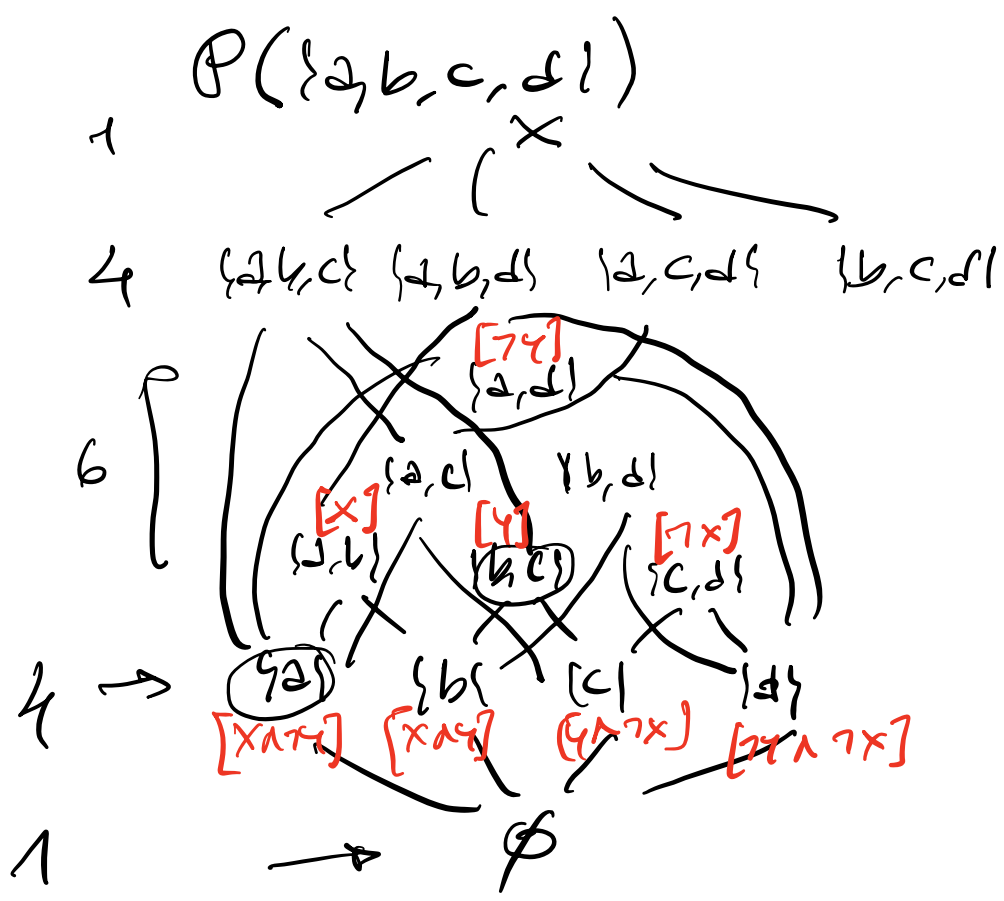 P({a,b,c,d})
1 X
4 {a,b,c} {a,b,d} {a,c,d} {b,c,d}
[¬y]
{a,d}
6 {a,c} {b,d}
[x] [y] [¬x]
{a,b} {b,c} {c,d}
4 → {a} {b} {c} {d}
[x∧¬y] [x∧y] [y∧¬x] [¬y∧¬x]
1 → ∅